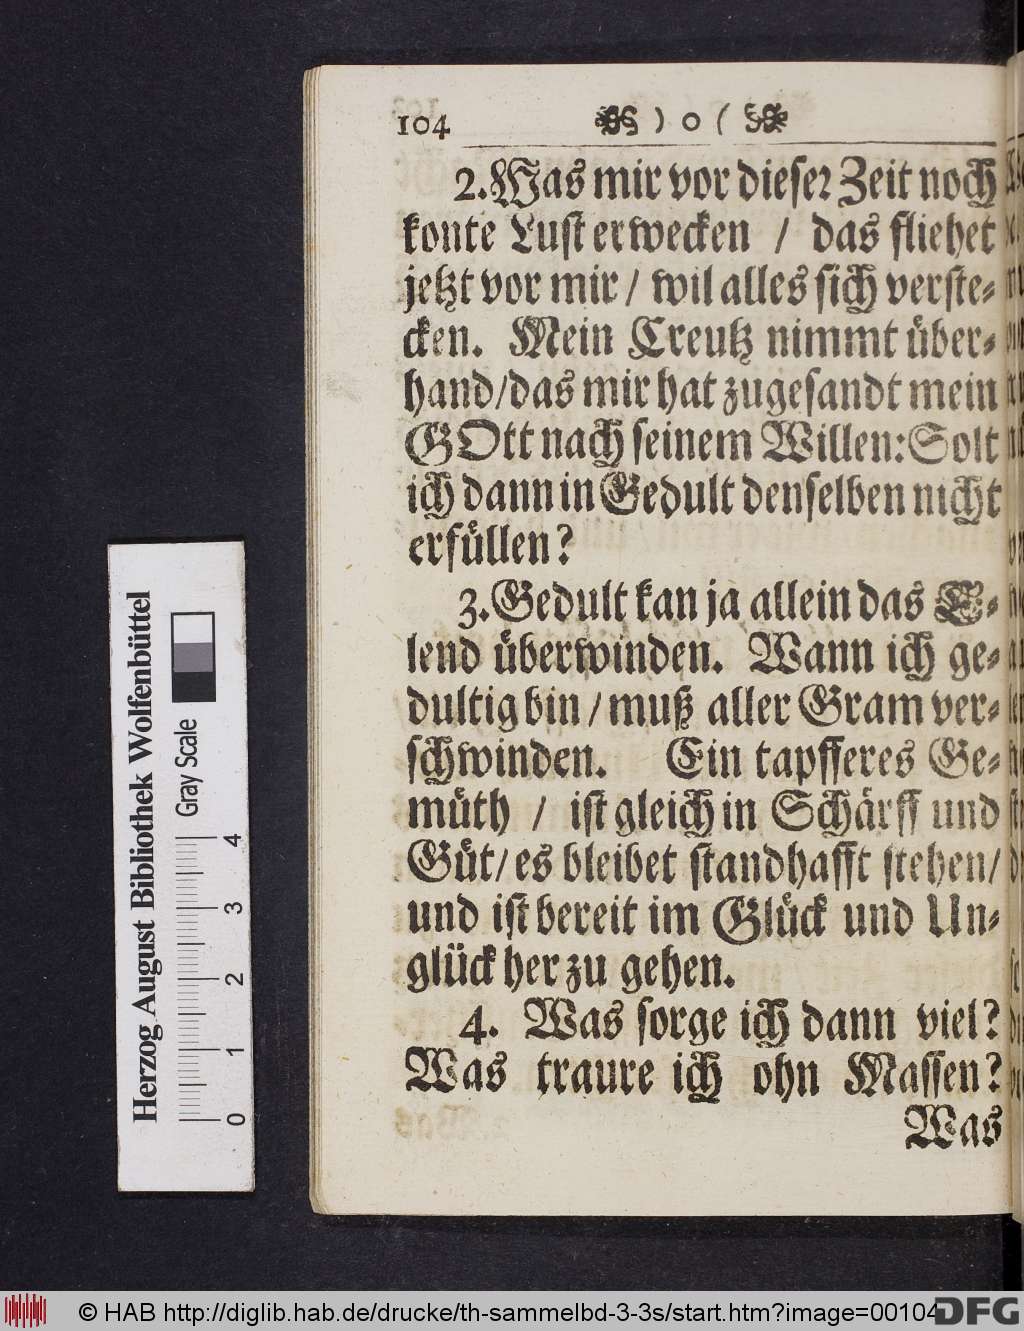 104 ) o (
2. Was mir vor dieser Zeit noch
konte Lust erwecken / das fliehet
jetzt vor mir / wil alles sich verste-
cken. Mein Creutz nimmt über-
hand / das mir hat zugesandt mein
GOtt nach seinem Willen: Solt
ich dann in Gedult denselben nicht
erfüllen?
3. Gedult kan ja allein das E-
lend überwinden. Wann ich ge-
dultig bin / muß aller Gram ver-
schwinden. Ein tapfferes Ge-
müth / ist gleich in Schärff und
Güt / es bleibet standhafft stehen /
und ist bereit im Glück und Un-
glück her zu gehen.
4. Was sorge ich dann viel?
Was traure ich ohn Massen?
Was
Herzog August Bibliothek Wolfenbüttel
Gray Scale
0 1 2 3 4
© HAB http://diglib.hab.de/drucke/th-sammelbd-3-3s/start.htm?image=00104
DFG